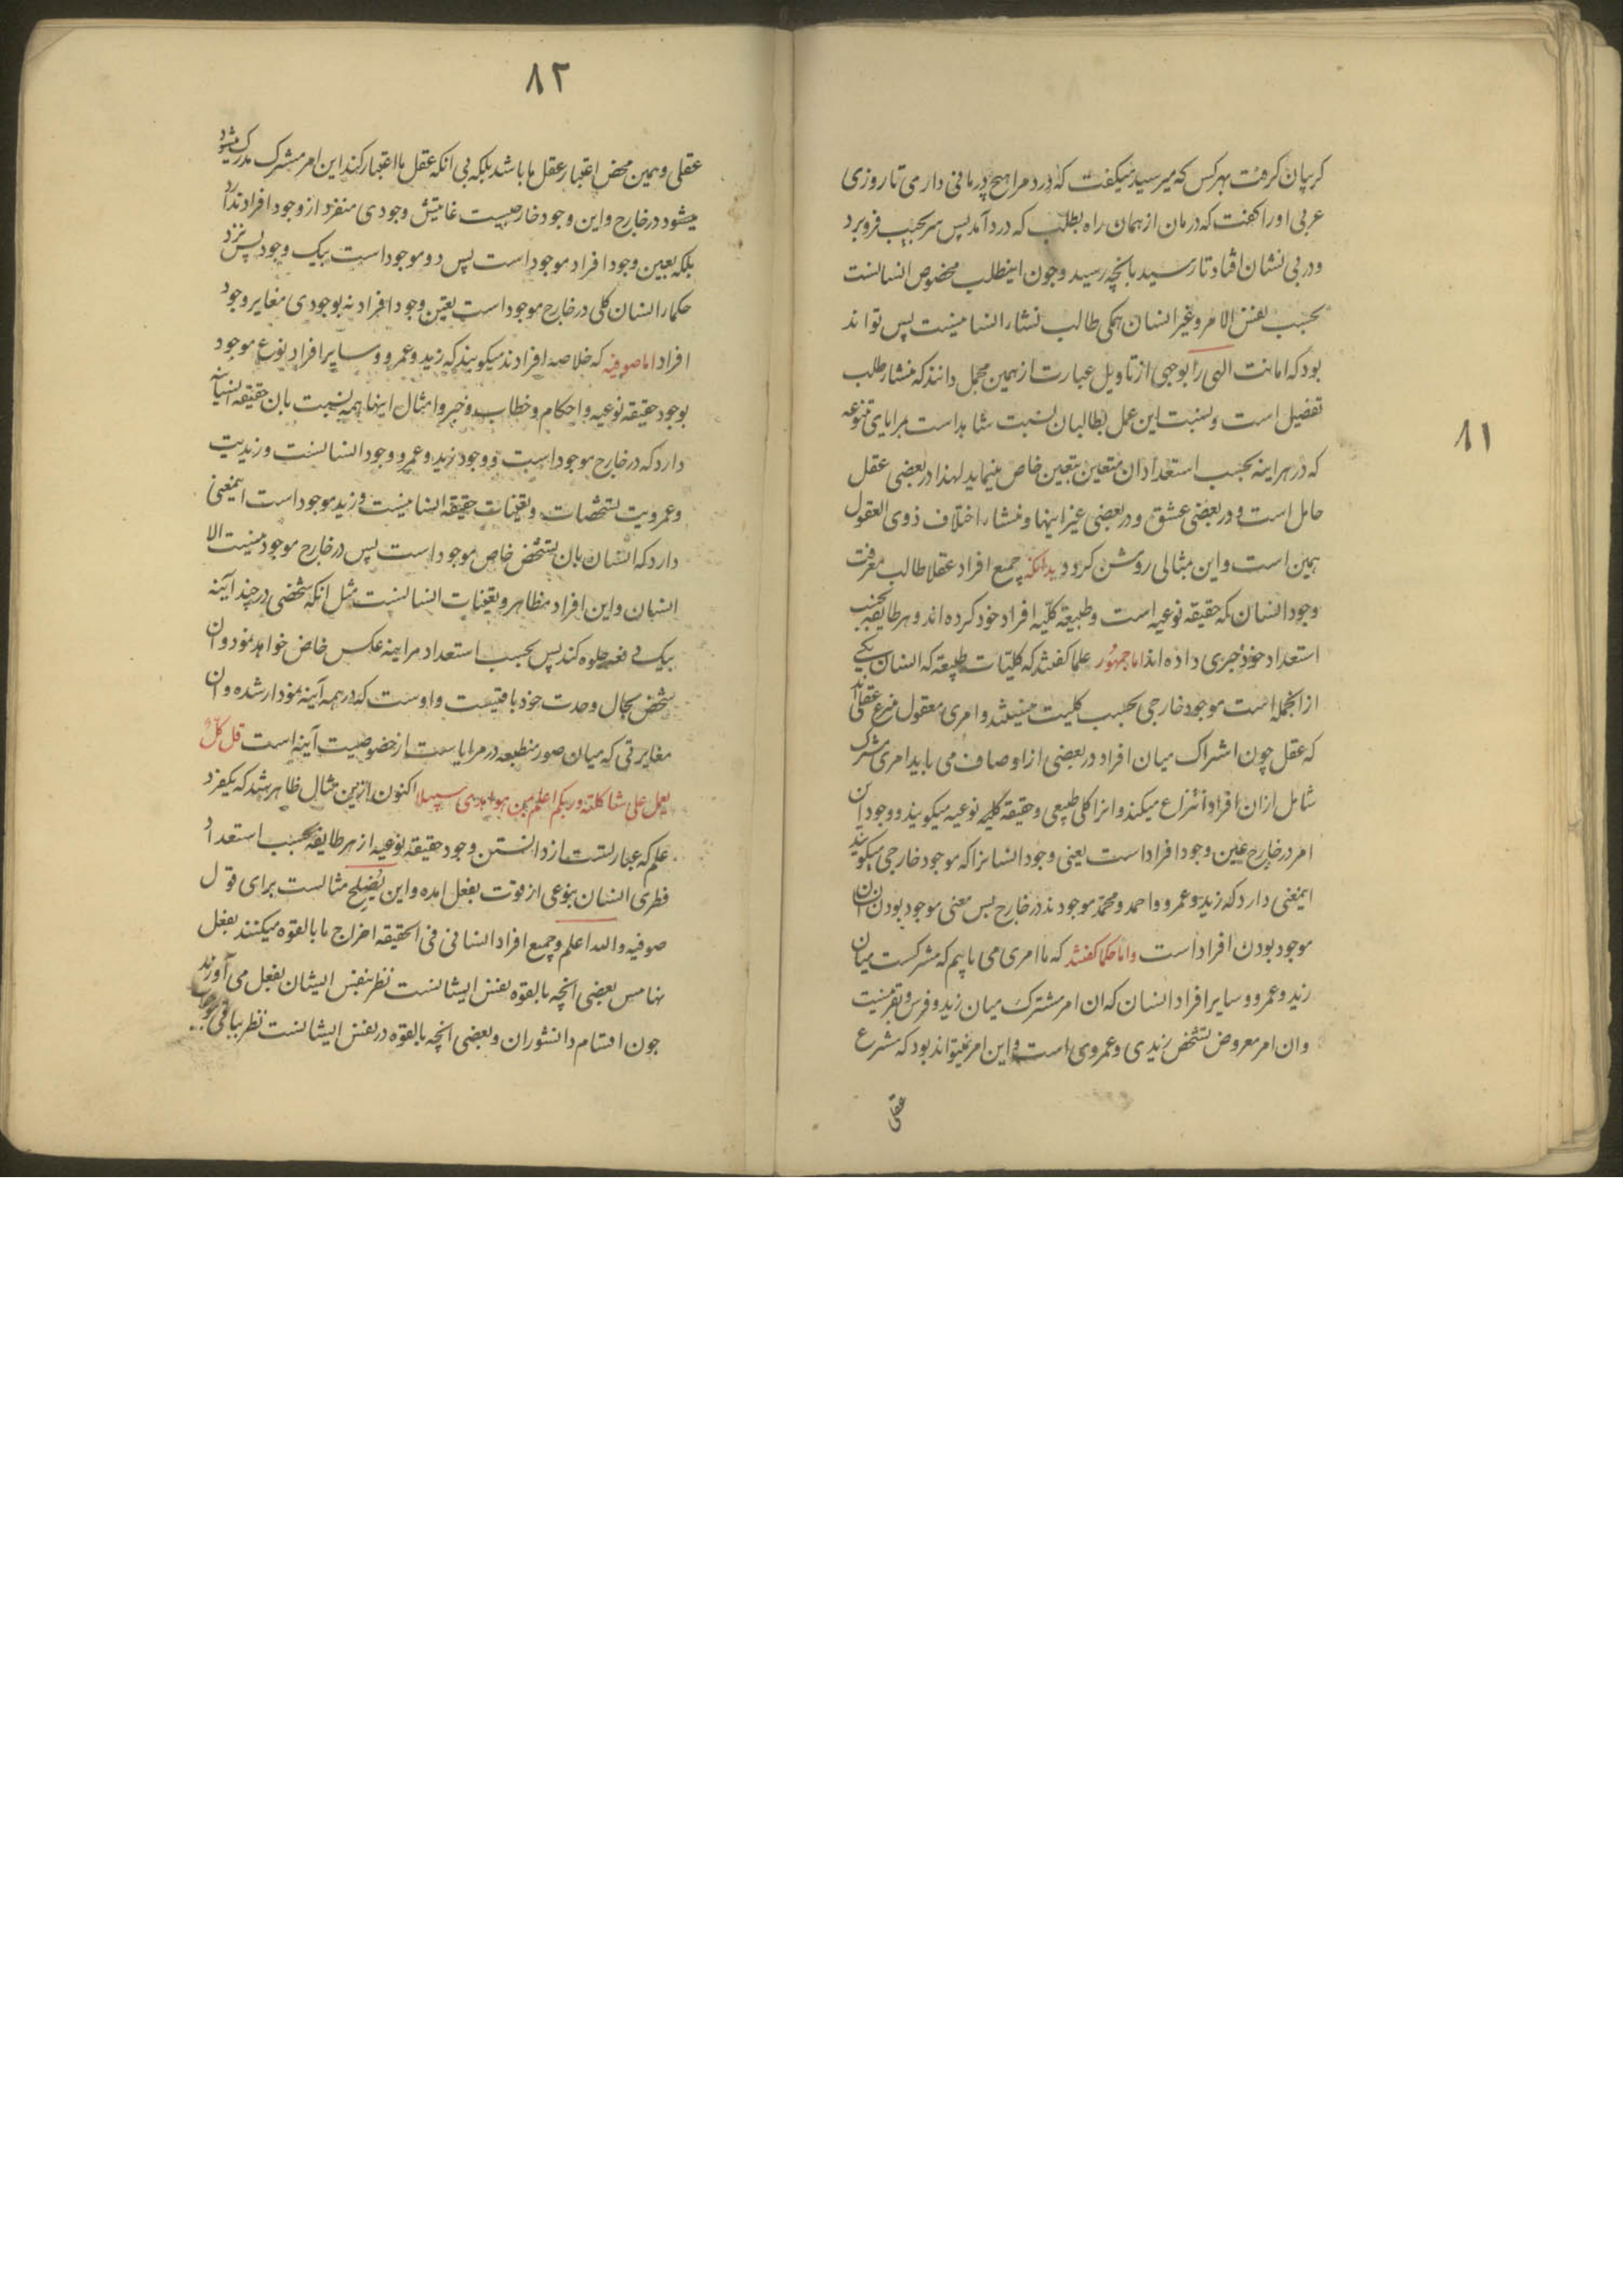 ۸۱
کریبان کرفت بهر کس که میرسید میکفت که درد مرا هیچ درمانی داری تا روزی
عربی او را کفت که درمان از همان راه بطلب که درد آمد پس سر بجیب فرو برد
و در بی نشان افتاد تا رسید بانچه رسید و چون اینطلب مخصوص انسانست
بحسب نفس الامر و غیر انسان همکی طالب نشاء انسانیست پس تواند
بود که امانت الهی را بوجهی از تاویل عبارت از همین مجمل دانند که منشاء طلب
تفضیل است و نسبت این عمل بطالبان نسبت شاهد است بمرایای متنوعه
که در هر اینه بحسب استعداد ان متعین بتعین خاص مینماید لهذا در بعضی عقل
حامل است و در بعضی عشق و در بعضی غیر اینها و منشاء اختلاف ذوی العقول
همین است و این مثالی روشن کردد بدانکه جمیع افراد عقلا طالب معرفت
وجود انسان که حقیقه نوعیه است و طبیعة کلیه افراد خود کرده اند و هر طایفه بحسب
استعداد خود خبری داده اند اما جمهور علما کفتند که کلیات طبیعة که انسان یکی
از انجمله است موجود خارجی بحسب کلیت نیستند و امری معقول منتزع عقلی اند
که عقل چون اشتراک میان افراد در بعضی از اوصاف می یابد امری مشترک
شامل ازان افراد انتزاع میکند و انرا کلی طبیعی و حقیقة کلیه نوعیه میکویند و وجود ان
امر در خارج عین وجود افراد است یعنی وجود انسانرا که موجود خارجی میکویند
اینمعنی دارد که زید و عمرو و احمد و محمد موجودند در خارج بس معنی موجود بودن انسان
موجود بودن افراد است و اما حکما کفتند که ما امری می یابیم که مشترکست میان
زید و عمرو و سایر افراد انسان که ان امر مشترک میان زید و فرس و بقر نیست
و ان امر معروض تشخص زیدی و عمروی است و این امر نمیتواند بود که منتزع
عقلی
۸۲
عقلی و همین محض اعتبار عقل ما باشد بلکه بی انکه عقل ما اعتبار کند این امر مشترک مدرک میشود
میشود در خارج و این وجود خارجیست غایتش وجودی منفرد از وجود افراد ندارد
بلکه بعین وجود افراد موجود است پس دو موجود است بیک وجود پس نزد
حکما انسان کلی در خارج موجود است بعین وجود افراد نه بوجودی مغایر وجود
افراد اما صوفیه که خلاصهٔ افرادند میکویند که زید و عمرو و سایر افراد نوع موجود
بوجود حقیقة نوعیه و احکام و خطاب و خبر و امثال اینها همه نسبت بان حقیقة انسانیه
دارد که در خارج موجود است و وجود زید و عمرو وجود انسانست و زیدیت
و عمرویت تشخصات و تعینات حقیقة انسانیست و زید موجود است اینمعنی
دارد که انسان بان تشخص خاص موجود است پس در خارج موجود نیست الا
انسان و این افراد مظاهر و تعینات انسانست مثل انکه شخصی در چند آینه
بیک دفعه جلوه کند پس بحسب استعداد هر اینه عکس خاص خواهد نمود و ان
شخص بحال وحدت خود باقیست و اوست که در همه آینه نمودار شده و ان
مغایرتی که میان صور منطبعه در مرایاست از خصوصیت آینه است قل کل
یعمل علی شاکلته و ربکم اعلم بمن هو اهدی سبیلا اکنون ازین مثال ظاهر شد که یکفرد
علم که عبارتست از دانستن وجود حقیقة نوعیه از هر طایفه بحسب استعداد
فطری انسان بنوعی از قوت بفعل امده و این مثالست برای قول
صوفیه و الله اعلم و جمیع افراد انسانی فی الحقیقه اخراج ما بالقوه میکنند بفعل
نهایس بعضی انچه بالقوه نفس ایشانست نظر بنفس ایشان بفعل می آورند
چون اقسام دانشوران و بعضی انچه بالقوه در نفس ایشانست نظر بباقی